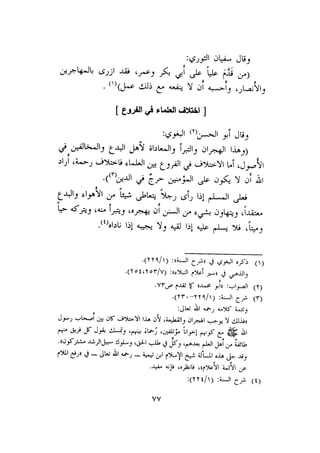 وقال سفيان الثوري:
(من قَدَّمَ علياً على أبي بكر وعمر، فقد ازرى بالمهاجرين
والأنصار، وأحسبه أن لا ينفعه مع ذلك عمل)(١) .
[ اختلاف العلماء في الفروع ]
وقال أبو الحسن(٢) البغوي:
(وهذا الهجران والتبرأ والمعاداة لأهل البدع والمخالفين في
الأصول، أما الاختلاف في الفروع بين العلماء فاختلاف رحمة، أراد
الله أن لا يكون على المؤمنين حرجٌ في الدين)(٣).
فعلى المسلم إذا رأى رجلاً يتعاطى شيئاً من الأهواء والبدع
معتقداً، ويتهاون بشيء من السنن أن يهجره، ويتبرأ منه، ويتركه حياً
وميتاً، فلا يسلم عليه إذا لقيه ولا يجيبه إذا ناداه(٤).
(١) ذكره البغوي في «شرح السنة»: (٢٢٩/١).
والذهبي في «سير أعلام النبلاء»: (٢٥٣/٧، ٢٥٤).
(٢) الصواب: «أبو محمد» كما تقدم ص٧٣.
(٣) شرح السنة: (٢٢٩/١-٢٣٠).
وتتمة كلامه رحمه الله تعالى:
«فذلك لا يوجب الهجران والقطيعة، لأن هذا الاختلاف كان بين أصحاب رسول
الله ﷺ مع كونهم إخواناً مؤتلفين، رُحماء بينهم، وتمسك بقول كل فريق منهم
طائفةٌ من أهل العلم بعدهم، وكلٌّ في طلب الحق، وسلوك سبيل الرشد مشتركون».
وقد جلى هذه المسألة شيخ الإسلام ابن تيمية ــ رحمه الله تعالى ــ في «رفع الملام
عن الأئمة الأعلام»، فانظره، فإنه مفيد.
(٤) شرح السنة: (٢٢٤/١):
٧٧